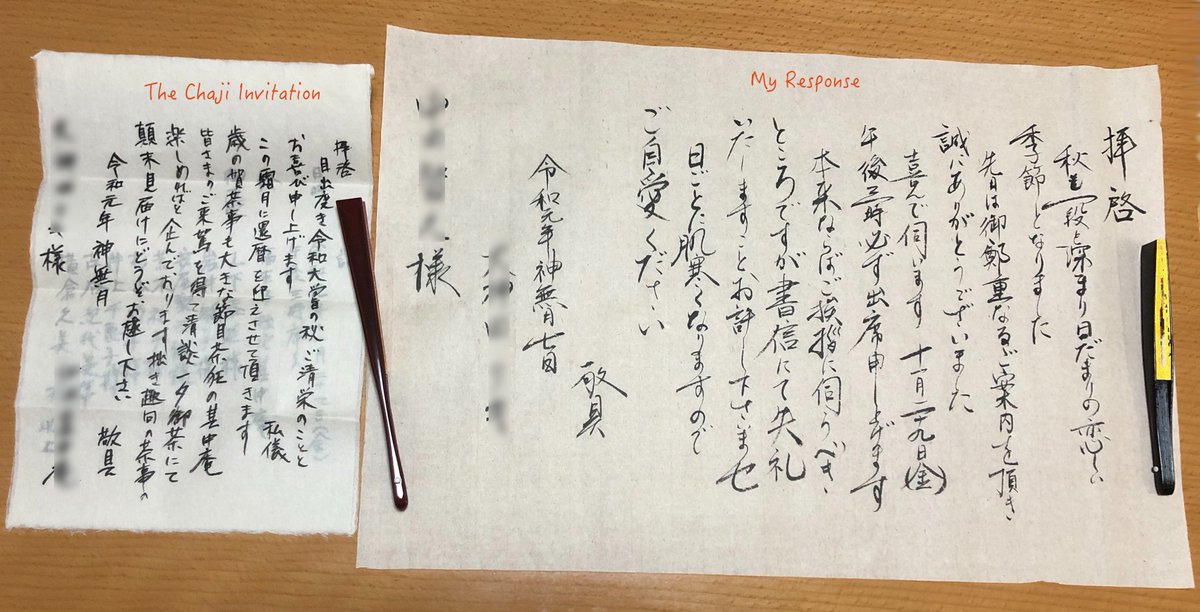 The Chaji Invitation
拝啓
目出度き令和大嘗の秋 ご清栄のことと
お喜び申し上げます 私儀
この霜月に還暦を迎えさせて頂きます
歳の賀茶事も大きな節目 茶狂の其中庵
皆さまのご来駕を得て清談一夕御茶にて
楽しめればと企んでおります 拙き趣向の茶事の
顛末見届けにどうぞお越し下さい
令和元年 神無月 敬具
様
My Response
拝啓
秋も一段と深まり日だまりの恋しい
季節となりました
先日は御鄭重なるご案内を頂き
誠にありがとうございました
喜んで伺います 十一月二九日(金)
午後 時必ず出席申し上げます
本来ならばご挨拶に伺うべき
ところですが書信にて失礼
いたしますことお許し下さいませ
日ごとに肌寒くなりますので
ご自愛ください
敬具
令和元年神無月七日
様